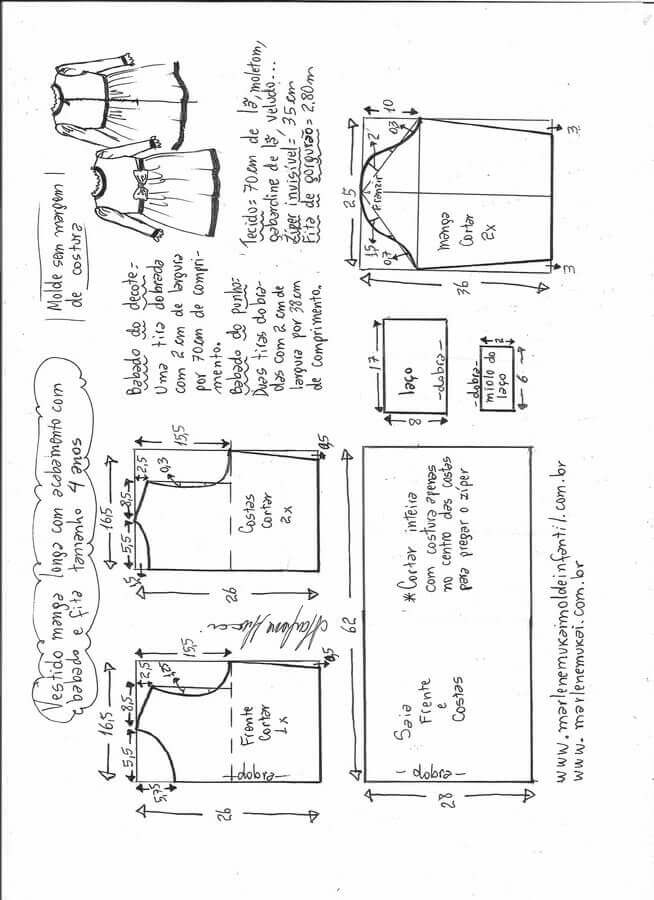 Vestido manga longa com acabamento com
babado e fita tamanho 4 anos
Molde sem margem
de costura
Babado do decote:
Uma tira dobrada
com 2 cm de largura
por 70cm de compri-
mento.
Babado do punho:
Duas tiras dobra-
das com 2 cm de
largura por 38cm
de comprimento.
Tecido= 70cm de lã, moletom,
gabardine de lã, veludo...
Ziper invisível= 35cm
Fita de gorgurão= 2,80m
16,5
5,5
8,5
2,5
15,5
5,75
26
0,5
Frente
Cortar
1x
dobra
16,5
5,5
8,5
2,5
0,3
15,5
26
0,5
Costas
Cortar
2x
25
10
0,3
2
Franzir
1,5
0,7
36
3
3
manga
Cortar
2x
17
8
laço
dobra
dobra
miolo do
laço
2
6
62
28
Saia
Frente
e
Costas
dobra
*Cortar inteira
com costura apenas
no centro das costas
para pregar o zíper
www.marlenemukaimoldeinfantil.com.br
www.marlenemukai.com.br